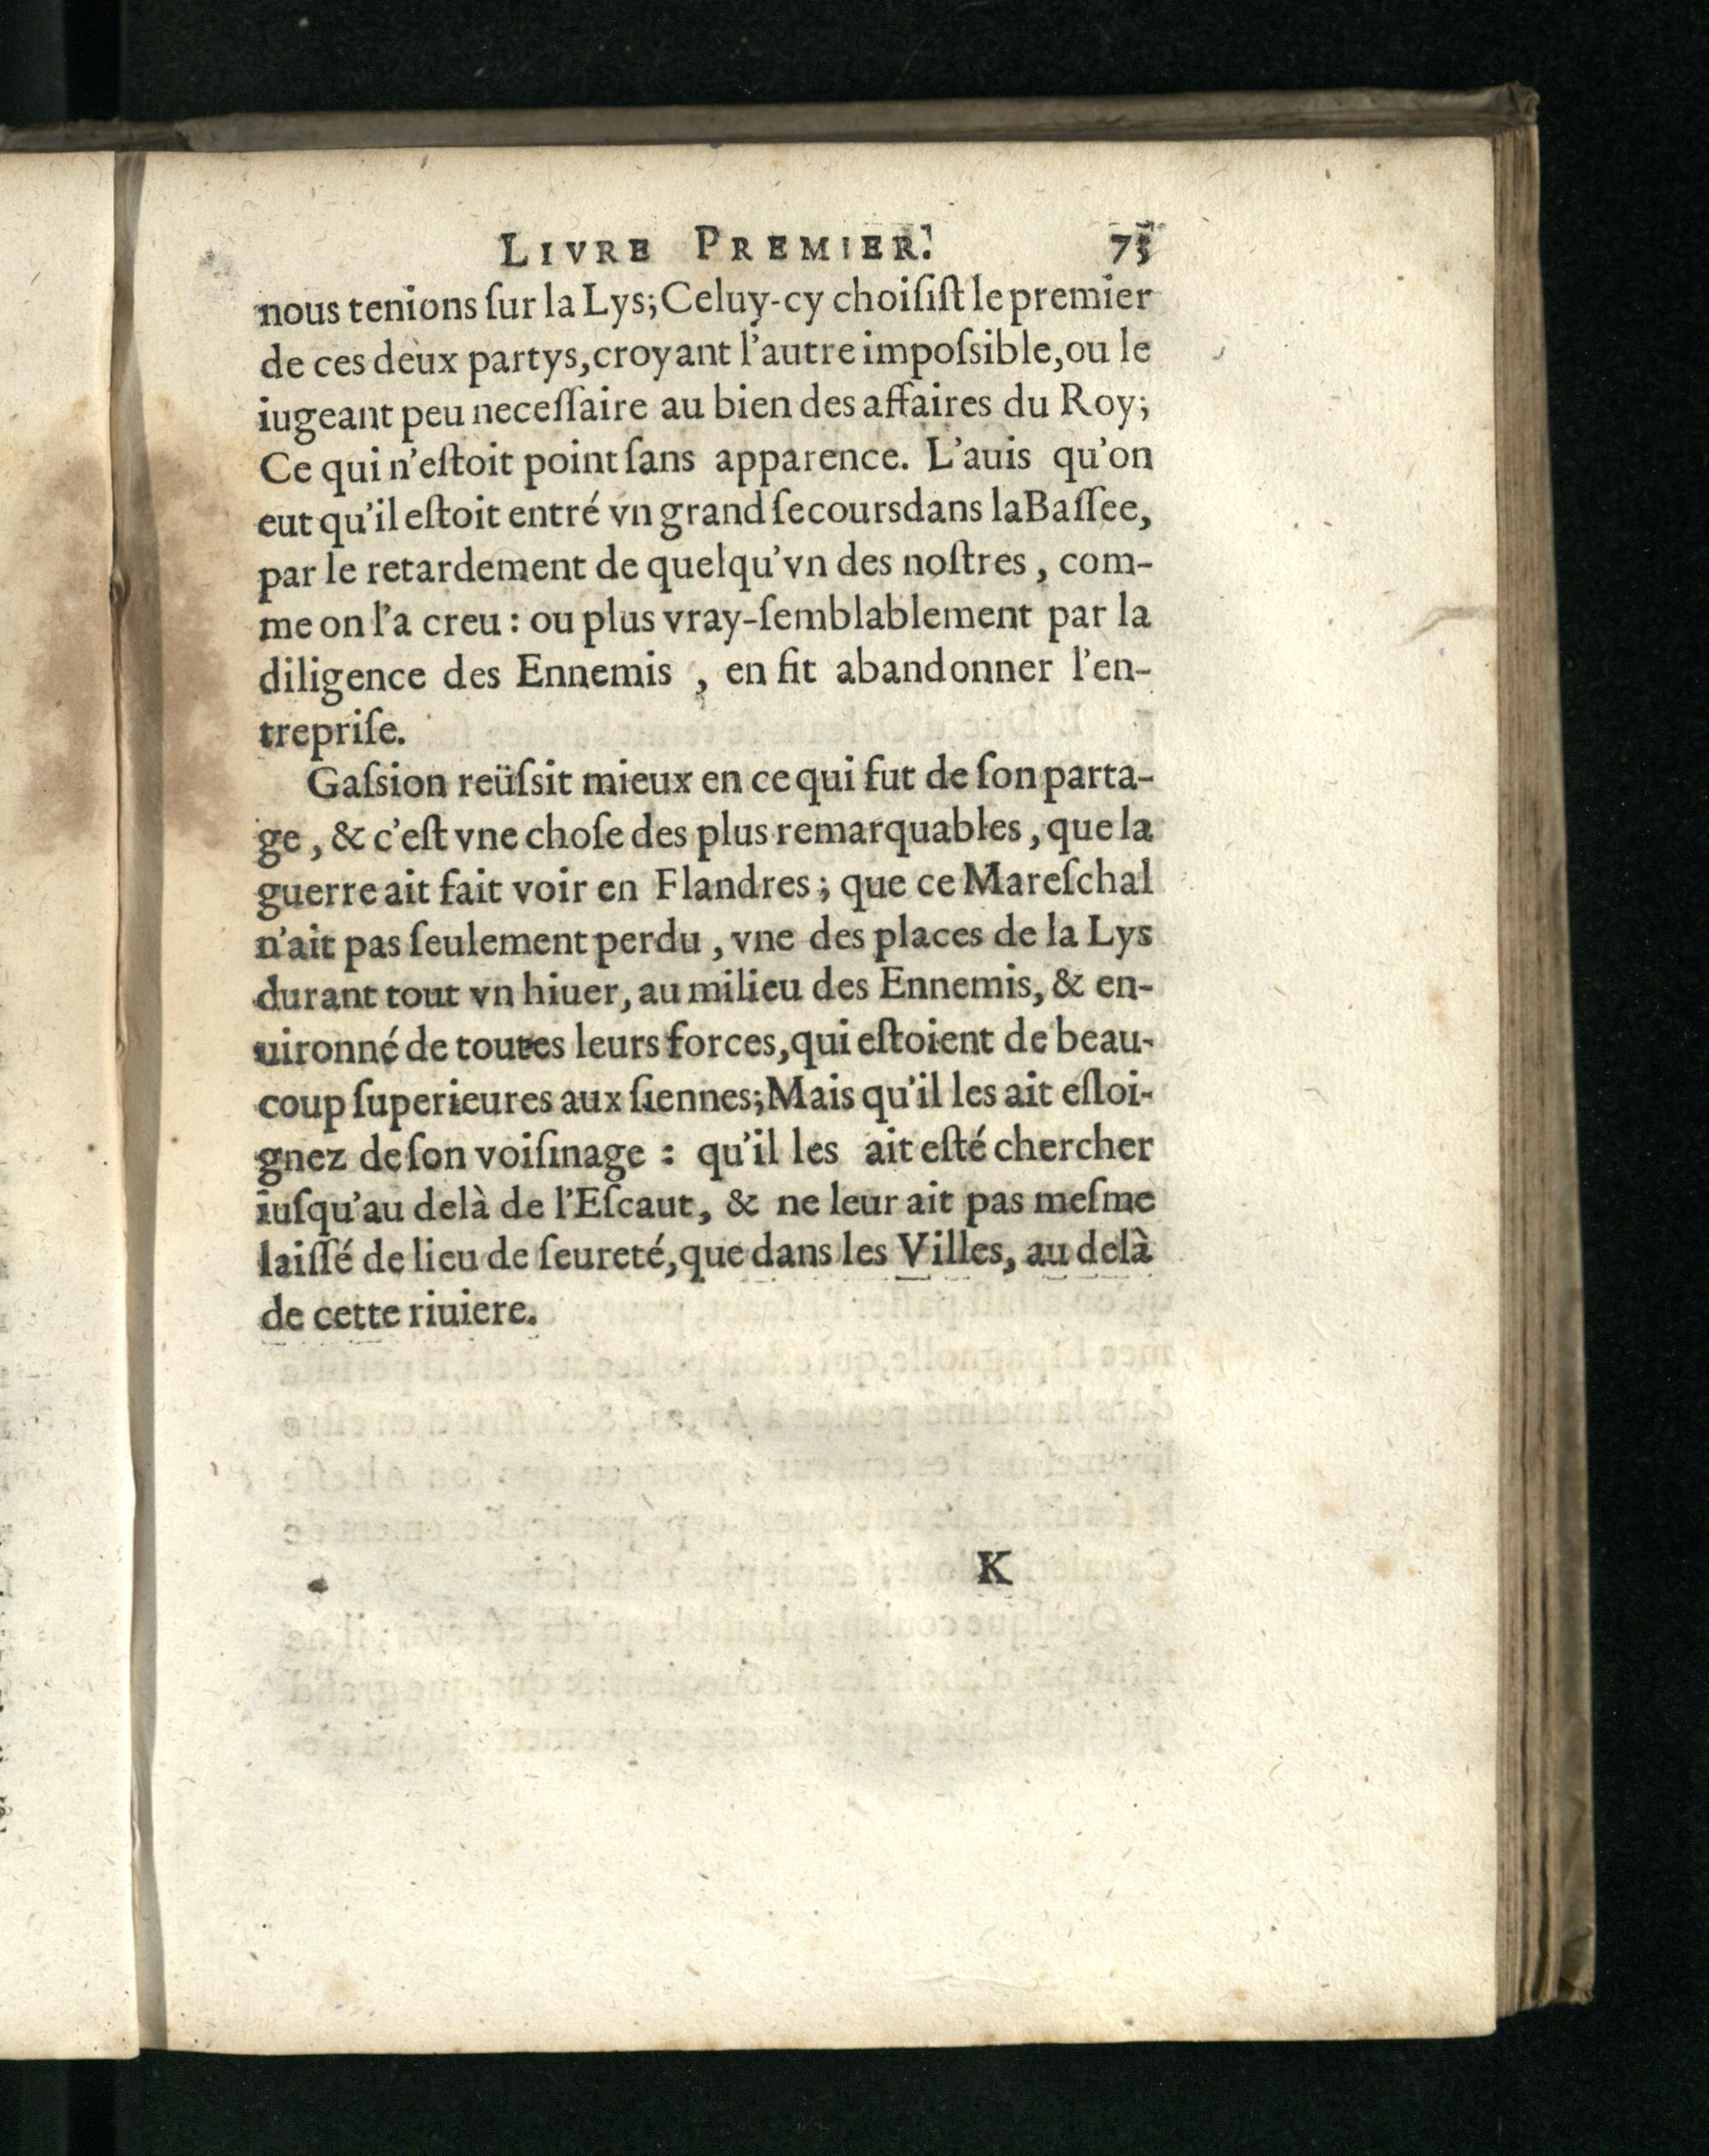 LIVRE PREMIER. 73
nous tenions ſur la Lys; Celuy-cy choiſiſt le premier
de ces deux partys, croyant l'autre impoſsible, ou le
iugeant peu neceſſaire au bien des affaires du Roy;
Ce qui n'eſtoit point ſans apparence. L'auis qu'on
eut qu'il eſtoit entré vn grand ſecours dans la Baſſee,
par le retardement de quelqu'vn des noſtres, com-
me on l'a creu: ou plus vray-ſemblablement par la
diligence des Ennemis, en fit abandonner l'en-
trepriſe.
Gaſsion reüſsit mieux en ce qui fut de ſon parta-
ge, & c'eſt vne choſe des plus remarquables, que la
guerre ait fait voir en Flandres; que ce Mareſchal
n'ait pas ſeulement perdu, vne des places de la Lys
durant tout vn hiuer, au milieu des Ennemis, & en-
uironné de toutes leurs forces, qui eſtoient de beau-
coup ſuperieures aux ſiennes; Mais qu'il les ait eſloi-
gnez de ſon voiſinage : qu'il les ait eſté chercher
iuſqu'au delà de l'Eſcaut, & ne leur ait pas meſme
laiſſé de lieu de ſeureté, que dans les Villes, au delà
de cette riuiere.
K